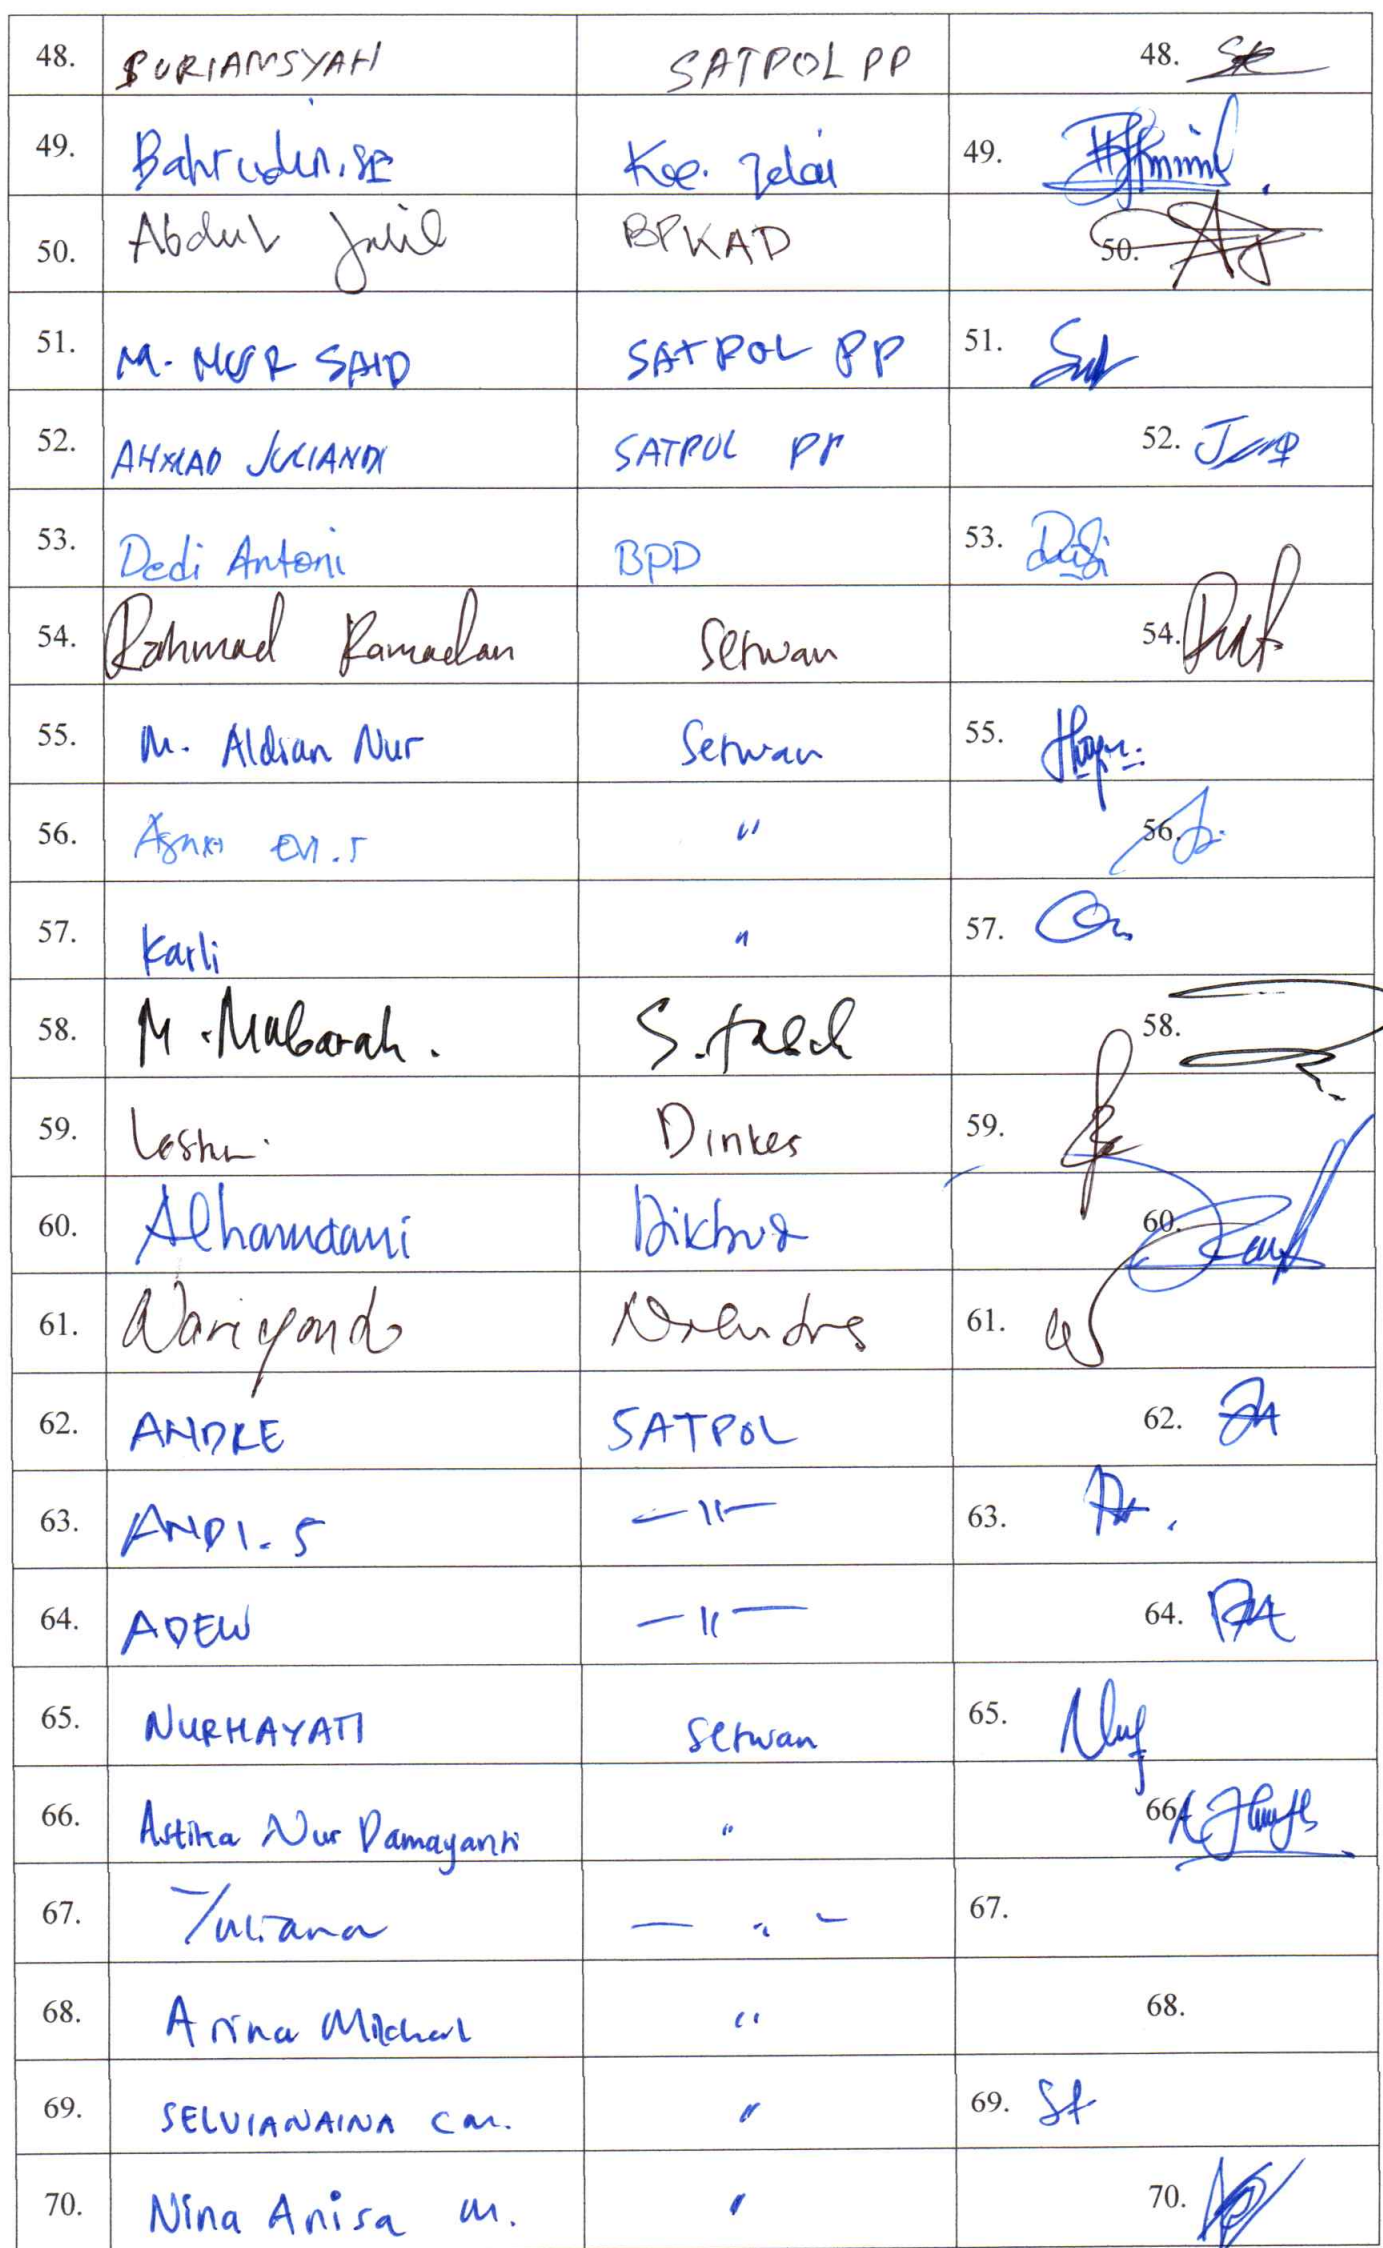 48. SURIANSYAH SATPOL PP 48.
49. Bahrudin, SE Kec. Jelai 49.
50. Abdul Jalil BPKAD 50.
51. M. NUR SAID SATPOL PP 51.
52. AHMAD JULIANDI SATPOL PP 52.
53. Dedi Antoni BPD 53. Dedi
54. Rahmad Ramadan Setwan 54.
55. M. Aldian Nur Setwan 55.
56. " 56.
57. Karli " 57.
58. M. Mubarak. 58.
59. Dinkes 59.
60. Alhamdani Dikbud 60.
61. Wariyando 61.
62. ANDRE SATPOL 62.
63. ANDI. S —"— 63.
64. ADEW —"— 64.
65. NURHAYATI Setwan 65.
66. Astika Nur Damayanti " 66.
67. Yuliana — " — 67.
68. Arina " 68.
69. SELVIANAINA CM. " 69.
70. Nina Anisa M. " 70.